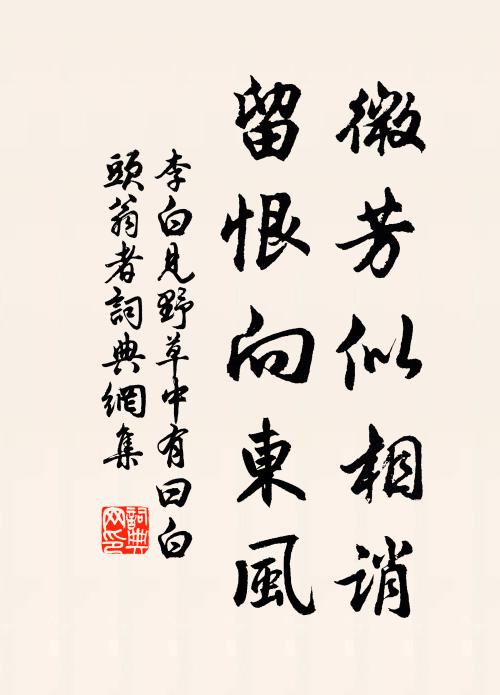 微芳似相誚
留恨向東風
李白見野草中有曰白
頭翁者詞典網集
詞典
网印